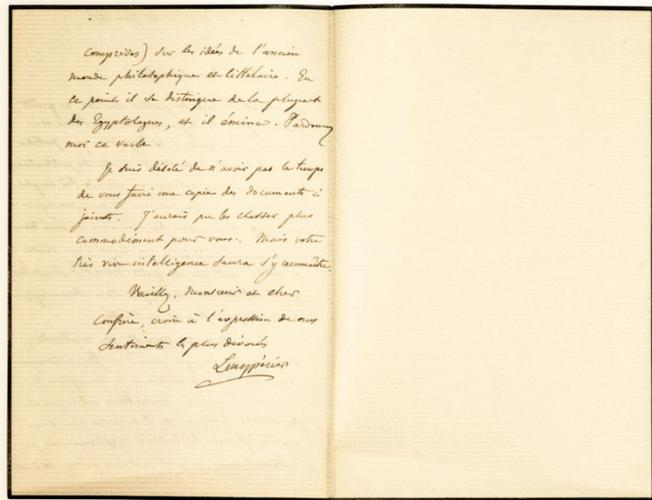 comprises) sur les idées de l'ancien
monde philosophique et littéraire. En
ce point il se distingue de la plupart
des Egyptologues, et il émine. Pardonnez
moi ce verbe
Je suis désolé de n'avoir pas le temps
de vous faire une copie des documents ci
joints. J'aurais pu les classer plus
commodément pour vous. Mais votre
très vive intelligence saura s'y reconnaître.
Veuillez, Monsieur et cher
Confrère, croire à l'expression de mes
sentiments les plus dévoués